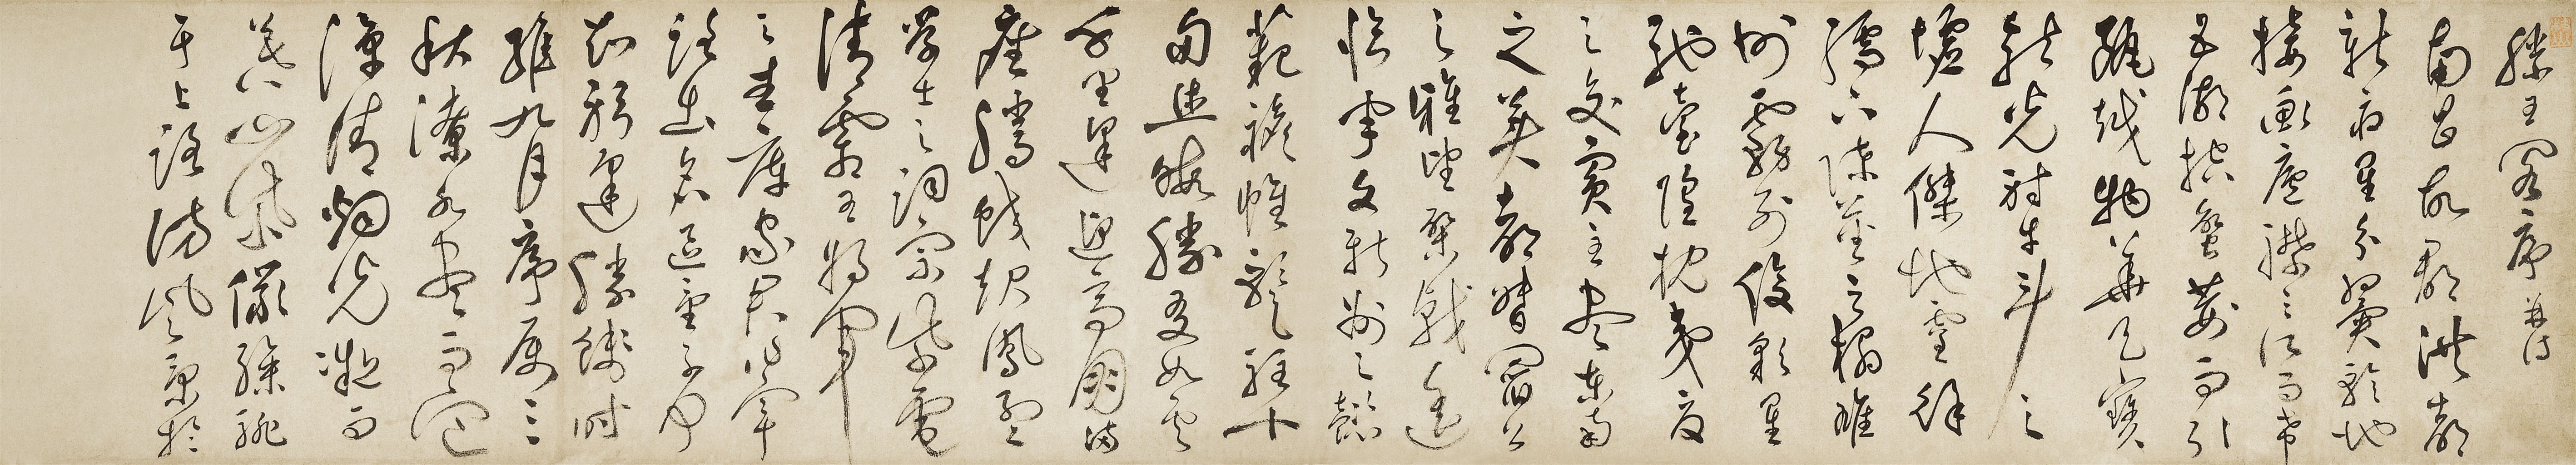 滕王閣序并詩
南昌故郡洪都
新府星分翼軫地
接衡廬襟三江而帶
五湖控蠻荊而引
甌越物華天寶
龍光射牛斗之
墟人傑地靈徐
孺下陳蕃之榻雄
州霧列俊彩星
馳臺隍枕夷夏
之交賓主盡東南
之美都督閻公
之雅望棨戟遙
臨宇文新州之懿
範襜帷暫駐十
旬休暇勝友如雲
千里逢迎高朋滿
座騰蛟起鳳孟
學士之詞宗紫電
清霜王將軍
之武庫家君作宰
路出名區童子何
知躬逢勝餞時
維九月序屬三
秋潦水盡而寒
潭清烟光凝而
暮山紫儼驂騑
于上路訪風景於